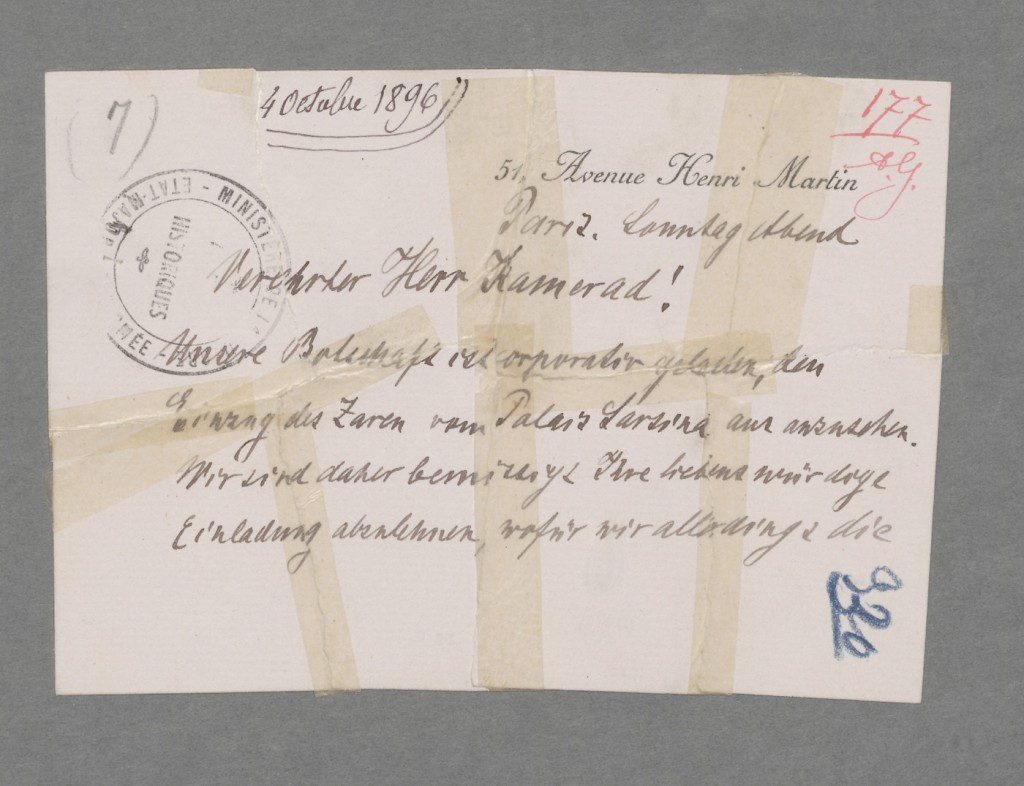 (7)
4 Octobre 1896
177
A.G.
51, Avenue Henri Martin
Paris. Sonntag Abend
MINISTÈRE DE LA
ETAT-MAJOR
MÉE
HISTORIQUES
Verehrter Herr Kamerad!
Unsere Botschaft ist corporativ geladen, den
Einzug des Zaren vom Palais Sarsina aus anzusehen.
Wir sind daher bemüssigt Ihre liebenswürdige
Einladung abzulehnen, wofür wir allerdings die